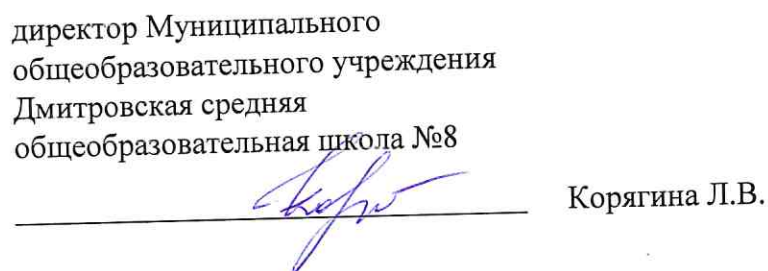 директор Муниципального
общеобразовательного учреждения
Дмитровская средняя
общеобразовательная школа №8
Корягина Л.В.